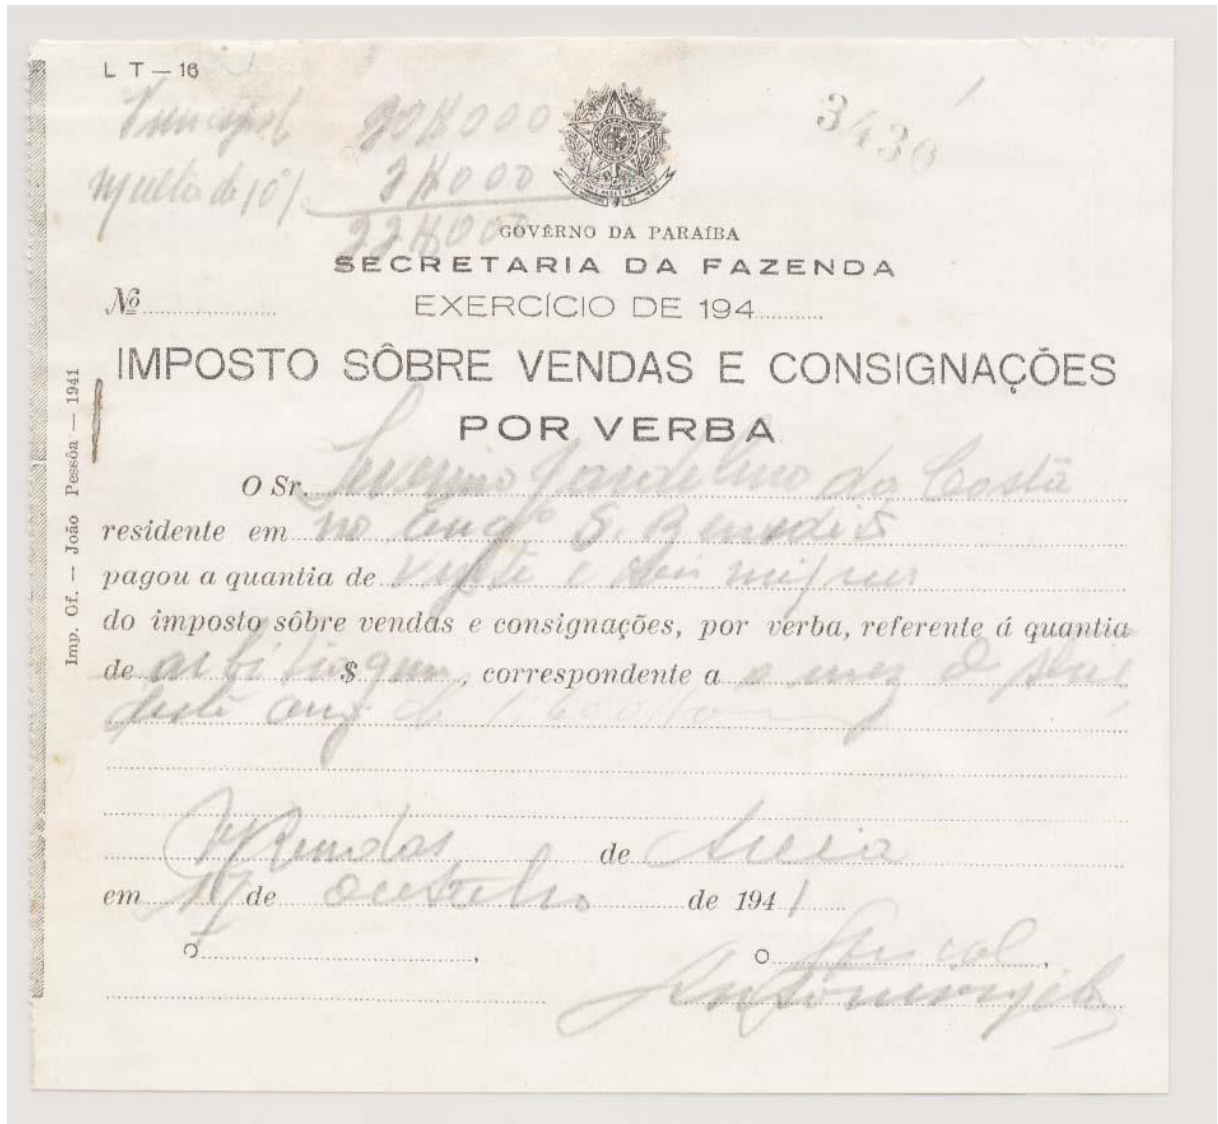 L T — 16
3430
Principal 20$000
Multa de 10% 2$000
22$000
GOVÊRNO DA PARAÍBA
SECRETARIA DA FAZENDA
Nº
EXERCÍCIO DE 194
IMPOSTO SÔBRE VENDAS E CONSIGNAÇÕES
POR VERBA
O Sr. Severino da Costa
residente em no Engº S. Benedito
pagou a quantia de vinte e dois mil reis
do imposto sôbre vendas e consignações, por verba, referente á quantia
de arbitragem $, correspondente a o mez de
deste ano
Rendas de Areia
em 17 de outubro de 1941
O , O Fiscal,
Imp. Of. — João Pessôa — 1941